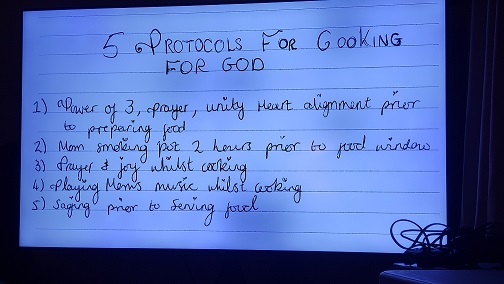 5 PROTOCOLS FOR COOKING
FOR GOD
1) Power of 3, prayer, unity Heart alignment prior
to preparing food
2) Mom smoking pot 2 hours prior to food window
3) Prayer & joy whilst cooking
4) Playing Mom's music whilst cooking
5) Saging prior to serving food